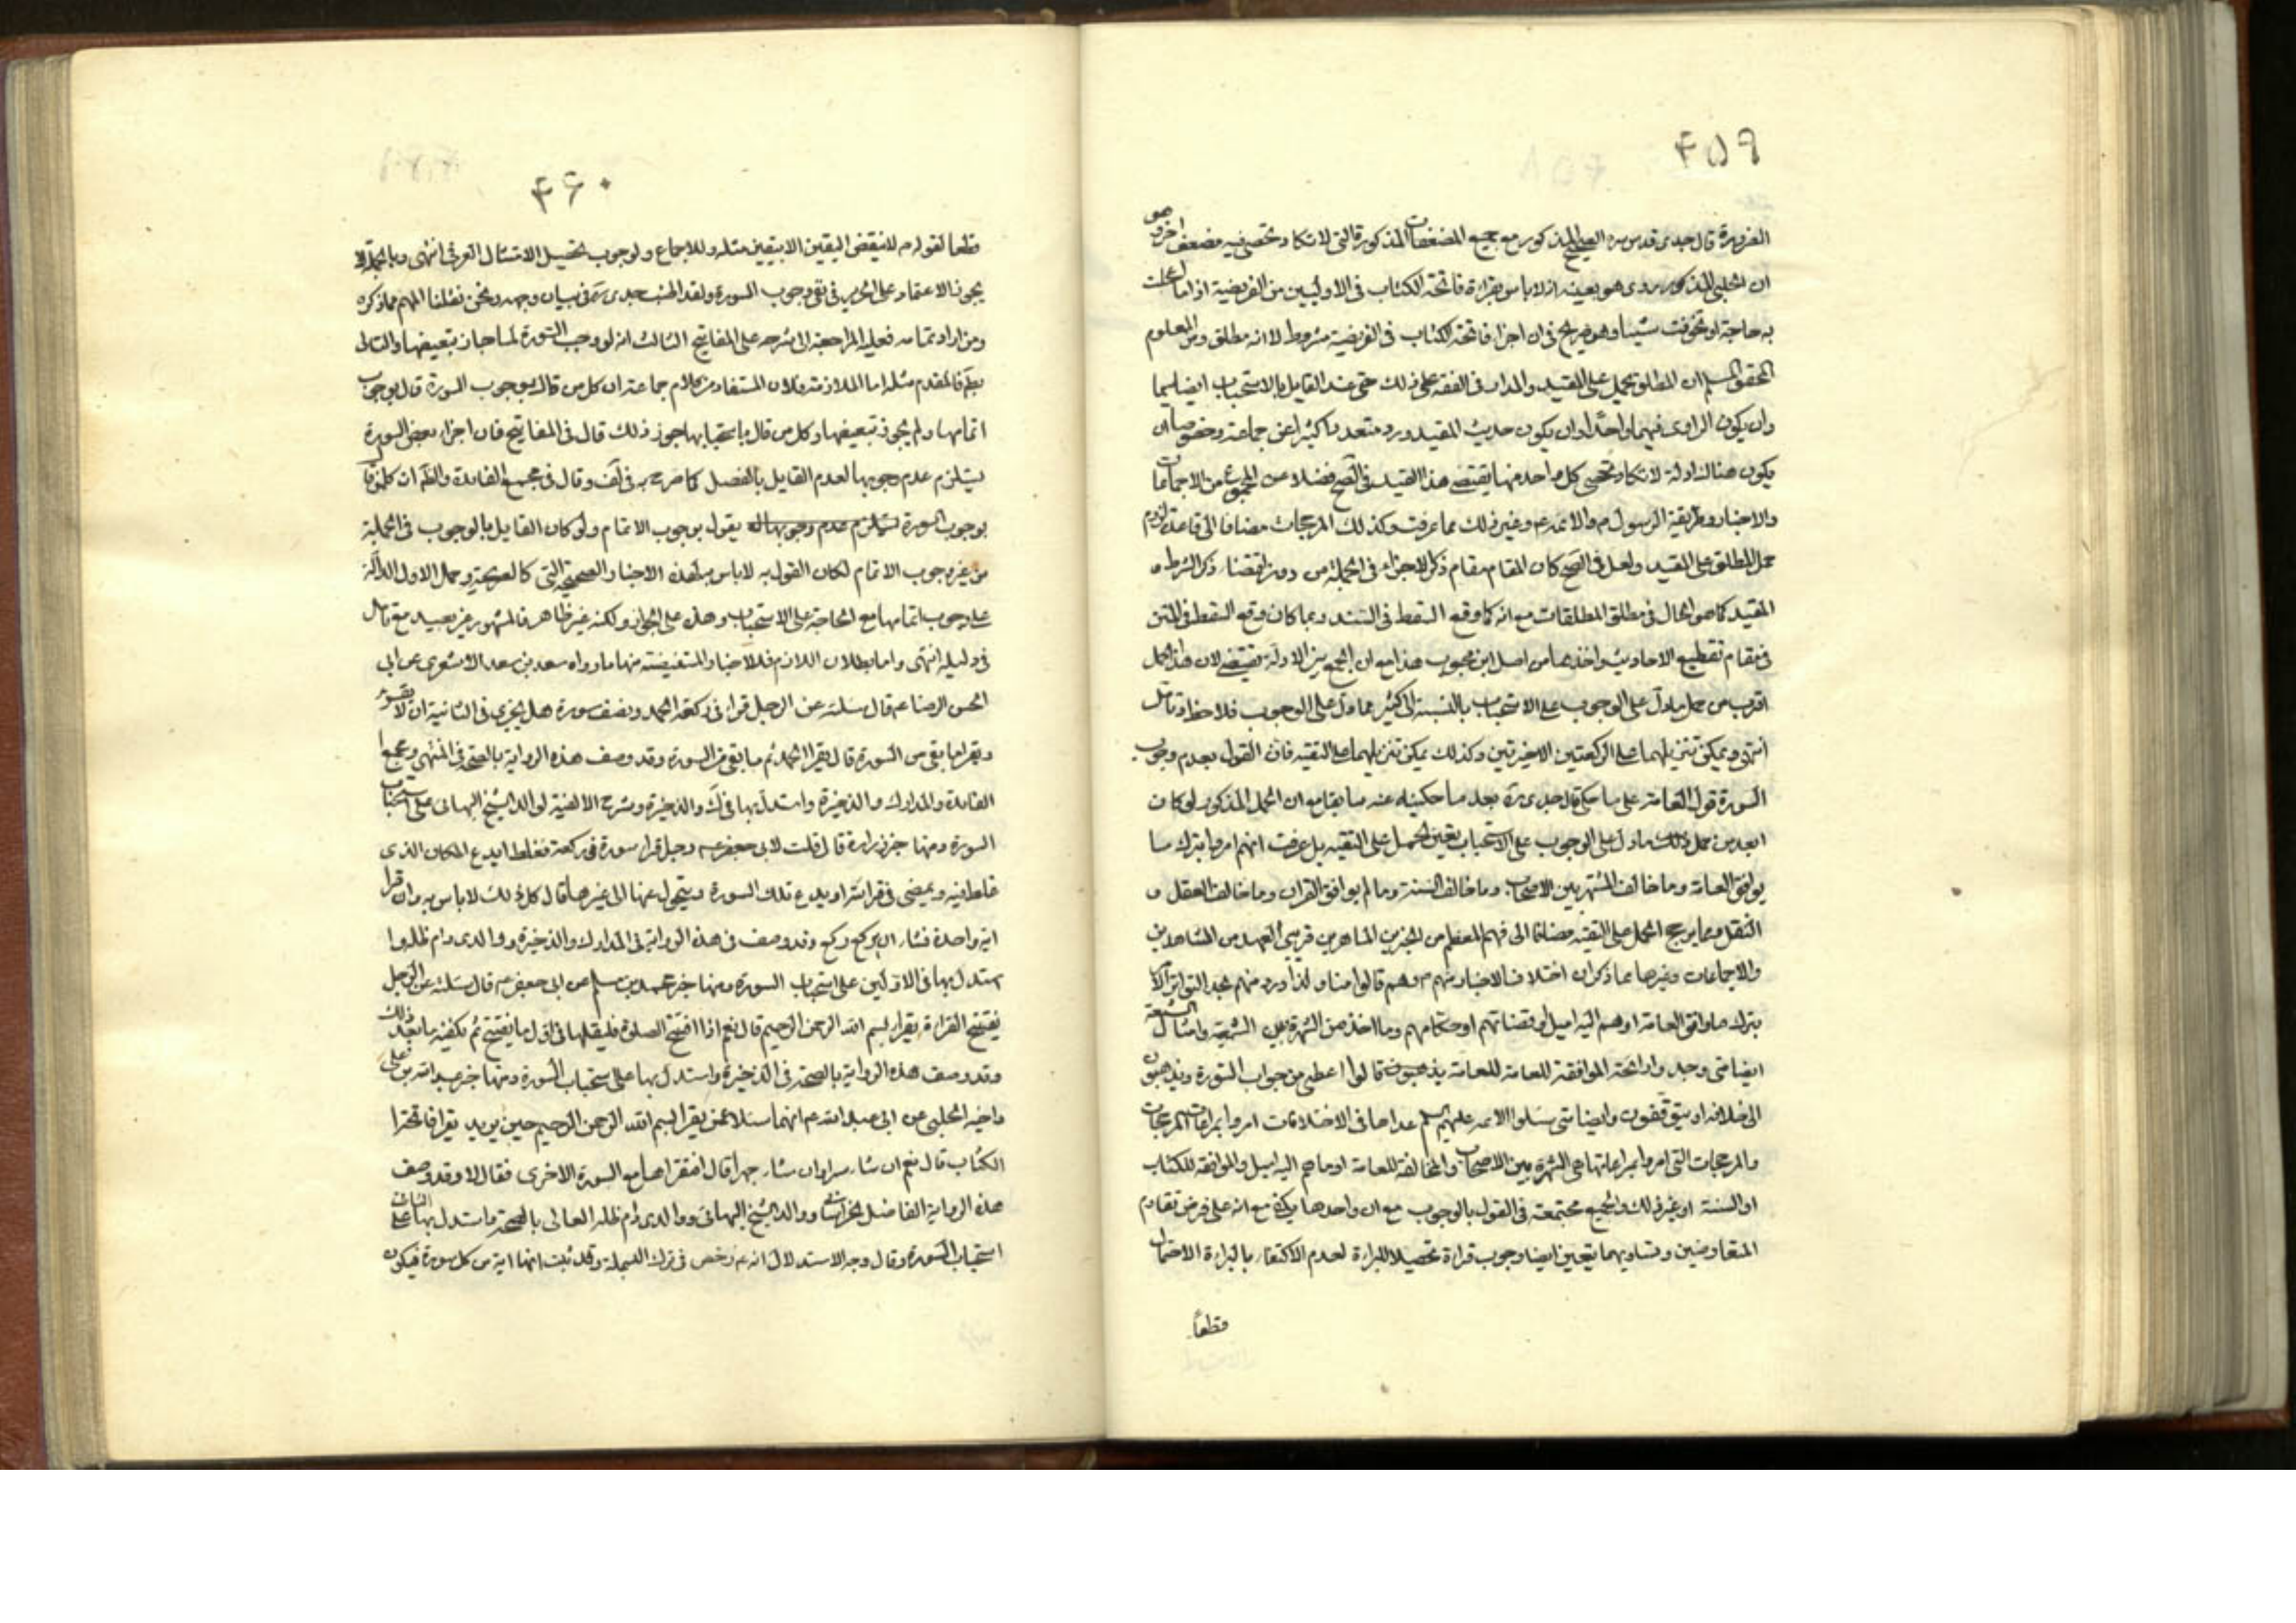 ۴۵۹
الضرورة قال جدى قدس سره الصحيح المذكور مع جميع المضعفات المذكورة التى لا تكاد تحصى فيه مضعف اخر هو
ان الحلبى المذكور روى هو بعينه انه لا باس بقراءة فاتحة الكتاب فى الاوليين من الفريضة اذا ما اعجلت
به حاجة او تخوفت شيئا وهو صريح فى ان اجزاء فاتحة الكتاب فى الفريضة مشروط لا انه مطلق ومن المعلوم
المحقق المسلم ان المطلق يحمل على المقيد والمدار فى الفقه على ذلك حتى عند القايل بالاستحباب ايضا سيما
وان يكون الراوى فيهما واحدا وان يكون حديث المقيد ورد متعددا كثيرا عن جماعة وخصوصا ان
يكون هناك ادلة لا تكاد تحصى كل واحد منها يقتضى هذا القيد فى الصحيح فضلا عن المجموع من الاجماعات
والاخبار وطريقة الرسول ص والائمة ع وغير ذلك مما عرفت وكذلك المرجحات مضافا الى قاعدة لزوم
حمل المطلق على المقيد ولعل فى الصحيح كان المقام مقام ذكر الاجزاء فى الجملة من دون اقتضاء ذكر الشرط و
المقيد كما هو الحال فى مطلق المطلقات مع انه كما وقع السقط فى السند ربما كان وقع السقط فى المتن
فى مقام تقطيع الاحاديث واخذها من اصل ابن محبوب هذا مع ان الجمع بين الادلة يقتضى لان هذا الحمل
اقرب من حمل ما دل على الوجوب على الاستحباب بالنسبة الى كثير مما دل على الوجوب فلاحظ وتامل
انتهى ويمكن تنزيلهما على الركعتين الاخيرتين وكذلك يمكن تنزيلهما على التقية فان القول بعدم وجوب
السورة قول العامة على ما حكاه جدى ره بعد ما حكيناه عنه سابقا مع ان الحمل المذكور لو كان
ابعد من حمل ذلك ما دل على الوجوب على الاستحباب يتعين الحمل على التقية بل عرفت انهم امروا بترك ما
يوافق العامة وما خالف المشتهر بين الاصحاب وما خالف السنة وما لم يوافق القران وما خالف العقل و
النقل ومما يرجح الحمل على التقية مضافا الى فهم المعظم من الخبرين الماهرين قريبى العهد من المشاهدين
والاجماعات وغيرها مما ذكر ان اختلاف الاخبار منهم ع وهم قالوا منا ولذا ورد منهم بحد التواتر الامر
بترك ما وافق العامة او هم اليه اميل او قضاتهم او حكامهم وما اخذ من الشهرة بين الشيعة وامثال
ايضا متى وجدوا رائحة الموافقة للعامة للعامة يذهبون قالوا اعطى من جواب السورة ويذهبون
الى خلافه او يتوقفون وايضا متى سئلوا الائمة عليهم السلم عداها فى الاختلافات امروا بمراعات المرجحات
والمرجحات التى امروا بمراعاتها هى الشهرة بين الاصحاب والمخالفة للعامة او ما هم اليه اميل والموافقة للكتاب
او السنة او غير ذلك والجميع مجتمعة فى القول بالوجوب مع ان واحدها يكفى مع انه على فرض تقادم
المتعارضين وتساويهما يتعين ايضا وجوب قراءة تحصيلا للبراءة لعدم الاكتفاء بالبراءة الاحتمالى
قطعاً
۴۶۰
قطعا لقوله ع لا ينقض اليقين الا بيقين مثله وللاجماع ولوجوب تحصيل الامتثال العرفى انتهى وبالجملة لا
يجوز الاعتماد على الخبرين فى نفى وجوب السورة ولقد اطنب جدى ره فى بيان وجهه ونحن نقلنا المهم مما ذكره
ومن اراد تمامه فعليه المراجعة الى شرحه على المفاتيح الثالث انه لو وجب السورة لما جاز تبعيضها والتالى
بط فالمقدم مثله اما الملازمة فلان المستفاد من كلام جماعة ان كل من قال بوجوب السورة قال بوجوب
اتمامها ولم يجوز تبعيضها وكل من قال باستحبابها جوز ذلك قال فى المفاتيح فان اجزاء بعض السورة
يستلزم عدم وجوبها لعدم القايل بالفصل كما صرح به فى لف وقال فى مجمع الفائدة والظ ان كل من قال
بوجوب السورة يستلزم عدم وجوبها له يقول بوجوب الاتمام ولو كان القايل بالوجوب فى الجملة
من غير وجوب الاتمام لكان القول به لا باس به لهذه الاخبار الصحيحة التى كالصريحة وحمل الاول الدالة
على وجوب اتمامها مع الحاجة على الاستحباب وهذه على الجواز ولكنه غير ظاهر فالمشهور غير بعيد مع تامل
فى دليله انتهى واما بطلان اللازم فللاخبار المستفيضة منها ما رواه سعد بن سعد الاشعرى عن ابى
الحسن الرضا ع قال سئلته عن الرجل قرا فى ركعة الحمد ونصف سورة هل يجزى فى الثانية ان لا يقرا
ويقرا ما بقى من السورة قال يقرا الحمد ثم ما بقى من السورة وقد وصف هذه الرواية بالصحة فى المنتهى ومجمع
الفائدة والمدارك والذخيرة واستدل بها فى ك والذخيرة وشرح الالفية لوالد الشيخ البهائى على استحباب
السورة ومنها خبر زرارة قال قلت لابى جعفر ع رجل قرا سورة فى ركعة فغلط ايدع المكان الذى
غلط فيه ويمضى فى قرائته او يدع تلك السورة ويتحول عنها الى غيرها قال كل ذلك لا باس به وان قرا
اية واحدة فشاء ان يركع ركع وقد وصف فى هذه الرواية فى المدارك والذخيرة ووالدى دام ظله وا
ستدل بها فى الاولين على استحباب السورة ومنها خبر محمد بن مسلم عن ابى جعفر ع قال سئلته عن الرجل
يفتتح القراءة يقرا بسم الله الرحمن الرحيم قال نعم اذا افتتح الصلوة فليقلها فى اول ما يفتتح ثم يكفيه ما بعد ذلك
وقد وصف هذه الرواية بالصحة فى الذخيرة واستدل بها على استحباب السورة ومنها خبر عبيد الله بن على
واخيه الحلبى عن ابى عبد الله ع انهما سئلاه عمن يقرا بسم الله الرحمن الرحيم حين يريد يقرا فاتحة ا
الكتاب قال نعم ان شاء سرا وان شاء جهرا قال افيقراها مع السورة الاخرى فقال لا وقد وصف
هذه الرواية الفاضل الخراسانى ووالد الشيخ البهائى ووالدى دام ظله العالى بالصحة واستدل بها الثالث على
استحباب السورة وقال وجه الاستدلال انه ع رخص فى ترك البسملة وقد ثبت انها اية من كل سورة فيكون